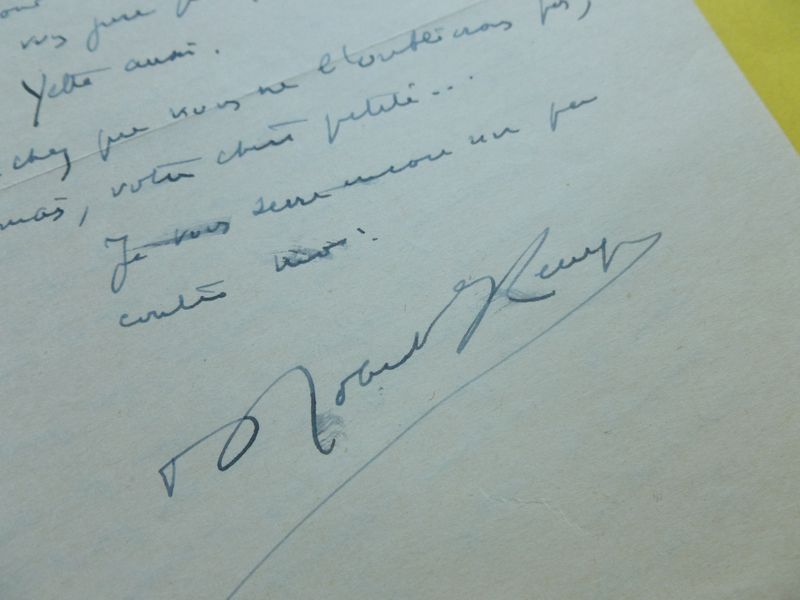 vous
Yette aussi.
que vous ne l'oublierais pas,
votre chère petite...
Je vous serre encore un peu
contre moi.
Robert Kemp